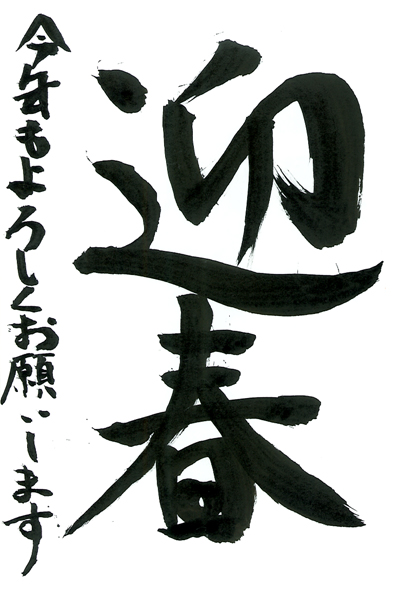 迎春
今年もよろしくお願いします